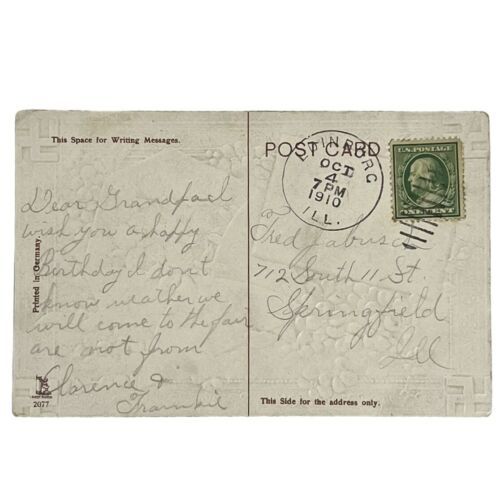 This Space for Writing Messages.
POST CARD
EDINBURG
OCT
4
7 PM
1910
ILL.
U.S. POSTAGE
ONE CENT
Dear Grandpa I
wish you a happy
Birthday I don't
know weather we
will come to the fair
are not from
Clorence &
Fred
712 South 11 St.
Springfield
Ill
Printed in Germany
2077
This Side for the address only.